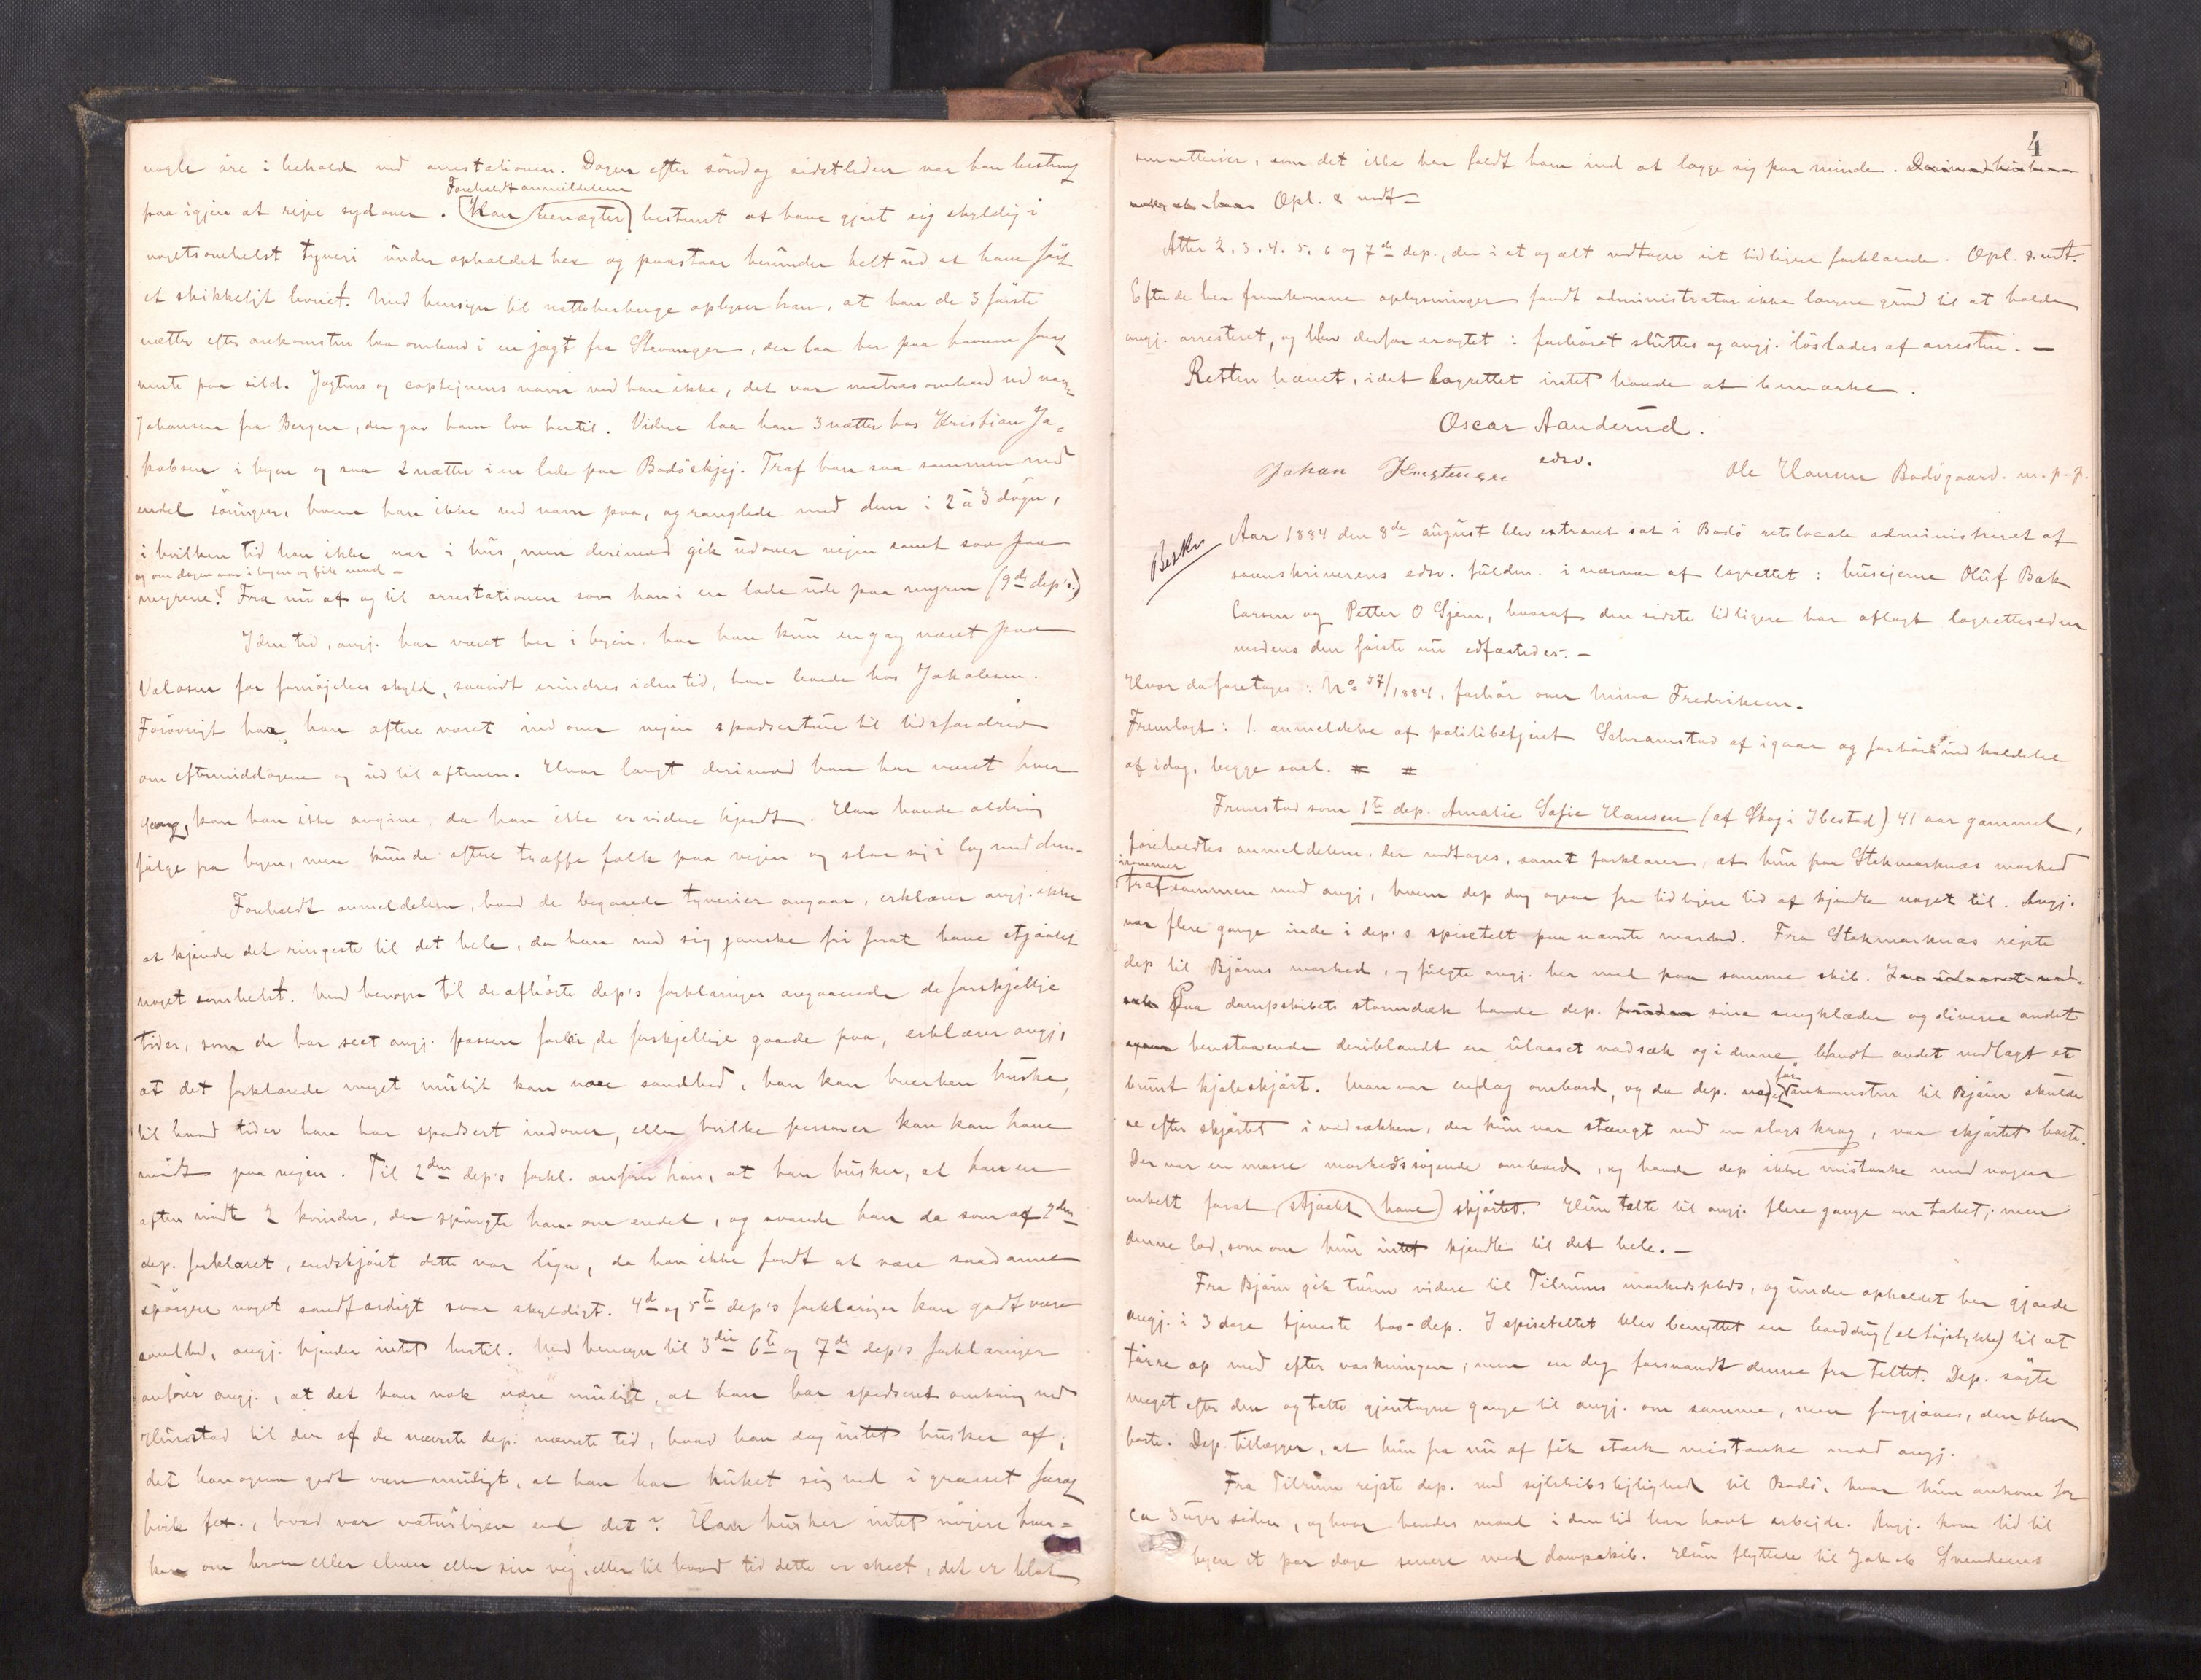 nogle öre i behold ved arrestationen. Dagen efter söndag sidstleden var han bestemt
Foreholdt anmeldelsen
paa igjen at rejse sydover. Han benægter bestemt at have gjort sig skyldig i
nogetsomhelst tyveri under opholdet her og paastaar herunder helt ud at have fört
et skikkeligt levnet. Med hensyn til natteherberge oplyser han, at han de 3 förste
nætter efter ankomsten laa ombord i en jægt fra Stavanger, der laa her paa havnen forat
vente paa sild. Jægtens og captejnens navn ved han ikke, det var matros ombord ved navn
Johansen fra Bergen, der gav ham lov hertil. Videre laa han 3 nætter hos Kristian Ja-
kobsen i byen og saa 2 nætter i en lade paa Bodöskjej. Traf han saa sammen med
endel söringer, hvem han ikke ved navn paa, og ranglede med dem i 2 à 3 dögn,
i hvilken tid han ikke var i hus, men derimod gik udover vejen samt sov paa
og om dagen var i byen og fik mad –
myrene. Fra nu af og til arrestationen sov han i en lade ude paa myren (9de dep's.)
I den tid, angj. har været her i byen, har han kun engang været paa
Valosen for fornöjelses skyld, saavidt erindres i den tid, han boede hos Jakobsen.
Forövrigt har han oftere været indover vejen spadserture til tidsfordriv
om eftermiddagen og ud til aftenen. Hvor langt derimod han har været hver
gang, kan han ikke angive, da han ikke er videre kjendt. Han havde aldrig
fölge fra byen, men kunde oftere træffe folk paa vejen og slaa sig i lag med dem.
Foreholdt anmeldelsen, hvad de begaaede tyverier angaar, erklærer angj. ikke
at kjende det ringeste til det hele, da han ved sig ganske fri forat have stjaalet
noget somhelst. Med hensyn til de afhörte dep's forklaringer angaaende de forskjellige
tider, som de har seet angj. passere forbi de forskjellige gaarde paa, erklærer angj.,
at det forklarede meget muligt kan være sandhed, han kan hverken huske,
til hvad tider han har spadsert indover, eller hvilke personer han kan have
mödt paa vejen. Til 2den dep's forkl. anförer han, at han husker, at han en
aften mödte 2 kvinder, der spurgte ham om endel, og svarede han da som af 2den
dep. forklaret, endskjönt dette var lögn, da han ikke fandt at være saadanne
spörgere noget sandfærdigt svar skyldigt. 4de og 5te dep's forklaringer kan godt være
sandhed, angj. kjender intet hertil. Med hensyn til 3die 6te og 7de dep's forklaringer
anförer angj., at det kan nok være muligt, at han har spadseret omkring ved
Hunstad til den af de nævnte dep. nævnte tid, hvad han dog intet husker af;
det kan ogsaa godt være muligt, at han har huket sig ned i græsset forat
hvile for., hvad var naturligere end det? Han husker intet nöjere hver-
ken om broen eller elven eller sin vej, eller til hvad tid dette er skeet, det er blot
4
smaatterier, som det ikke har faldt ham ind at lægge sig paa minde.
Opl. & vedt –
Atter 2. 3. 4. 5. 6 og 7de dep., der i et og alt vedtager sit tidligere forklarede. Opl. & vedt.
Efter de her fremkomne oplysninger fandt administrator ikke længere grund til at holde
angj. arresteret, og blev derfor eragtet: forhöret sluttes og angj. löslades af arresten. –
Retten hævet, idet lagrettet intet havde at bemærke.
Oscar Aanderud.
edsv.
Johan Kristensen Ole Hansen Bodögaard. m.p.p.
Beskr Aar 1884 den 8de august blev extraret sat i Bodö retslocale administreret af
sorenskriverens edsv. fuldm. i nærvær af lagrettet: husejerne Oluf Bæk
Larsen og Petter O Gjem, hvoraf den sidste tidligere har aflagt lagretteseden
medens den förste nu edfæstedes. –
Hvor da foretoges: No 57/1884, forhör over Mina Fredriksen.
Fremlagt: 1. anmeldelse af politibetjent Schramstad af igaar og forhörsindkaldelse
af idag, begge saal. # #
Fremstod som 1te dep. Amalie Sofie Hansen (af Skog i Ibestad) 41 aar gammel,
foreholdtes anmeldelsen, der vedtages, samt forklarer, at hun paa Stokmarknæs marked
isommer
traf sammen med angj., hvem dep dog ogsaa fra tidligere tid af kjendte noget til. Angj.
var flere gange inde i dep.s spisetelt paa nævnte marked. Fra Stokmarknæs rejste
dep til Bjørns marked, og fulgte angj. her med paa samme skib.
Paa dampskibets stormdæk havde dep. sine sengklæder og diverse andet
henstaaende deriblandt en ulaaset vadsæk og i denne blandt andet nedlagt et
brunt kjoleskjört. Man var en dag ombord, og da dep. för ankomsten til Bjørn skulde
se efter skjörtet i vadsækken, der kun var stængt med en slags krog, var skjörtet borte.
Der var en masse markedssögende ombord, og havde dep ikke mistanke mod nogen
enkelt forat stjaalet have skjörtet. Hun talte til angj. flere gange om tabet; men
denne lod, som om hun intet kjendte til det hele. –
Fra Bjørn gik turen videre til Tilrums markedsplads, og under opholdet her gjorde
angj. i 3 dage tjeneste hos dep. I spiseteltet blev benyttet en borddug (et töjstykke) til at
törre op med efter vaskningen; men en dag forsvandt denne fra teltet. Dep. sögte
meget efter den og talte gjentagne gange til angj. om samme, men forgjæves, den blev
borte. Dep. tillægger, at hun fra nu af fik stærk mistanke mod angj.
Fra Tilrum rejste dep. med sejlskibslejlighed til Bodö, hvor hun ankom for
ca 3 uger siden, og hvor hendes mand i den tid har havt arbejde. Angj. kom tid til
byen et par dage senere med dampskib. Hun flyttede til Jakob Svendsens